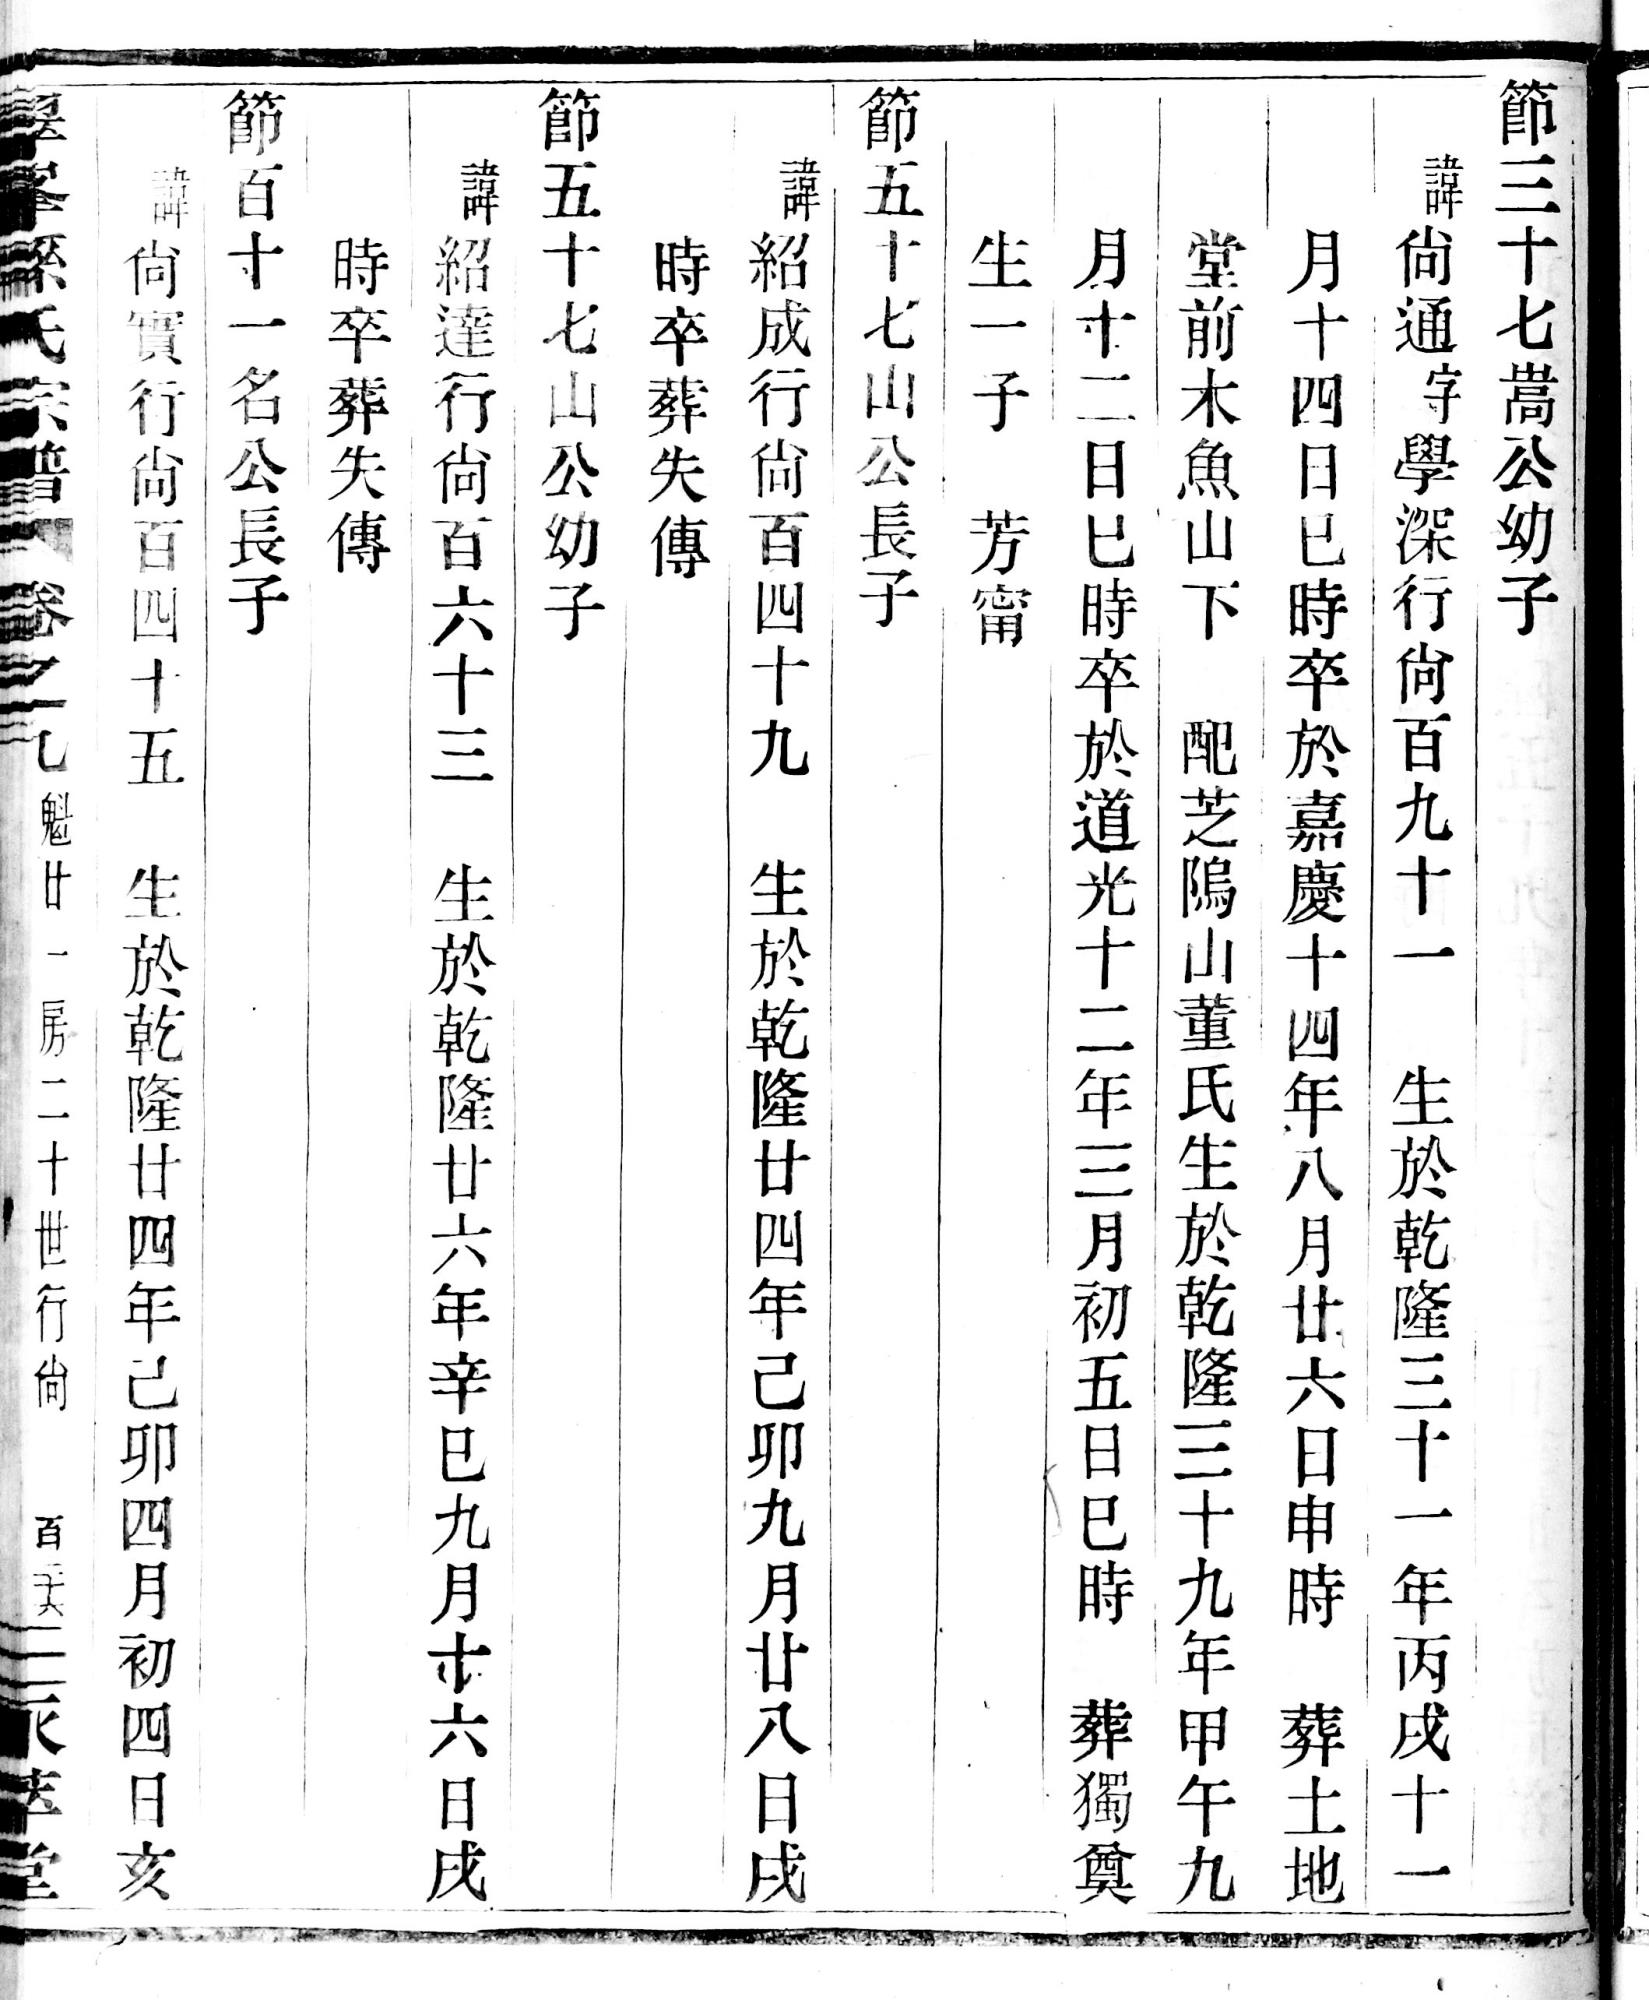 節三十七嵩公幼子
諱尙通字學深行尙百九十一　生於乾隆三十一年丙戌十一
月十四日巳時卒於嘉慶十四年八月廿六日申時　葬土地
堂前木魚山下　配芝隝山董氏生於乾隆三十九年甲午九
月十二日巳時卒於道光十二年三月初五日巳時　葬獨奠
生一子　芳甯
節五十七山公長子
諱紹成行尙百四十九　生於乾隆廿四年己卯九月廿八日戌
時卒葬失傳
節五十七山公幼子
諱紹達行尙百六十三　生於乾隆廿六年辛巳九月十六日戌
時卒葬失傳
節百十一名公長子
諱尙實行尙百四十五　生於乾隆廿四年己卯四月初四日亥
峯孫氏宗譜　卷之九　魁廿一房二十世行尙　百　萃堂